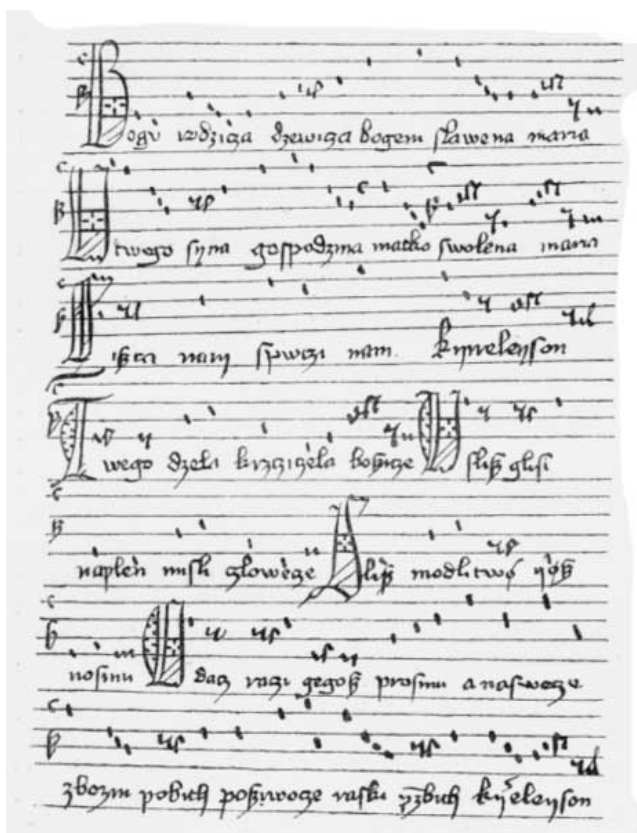 Bogv rodzicza dzewicza bogem slawena maria
U twego syna gospodzina matko swolena maria
nam spwczi nam. kyrieleyson
Twego dzela krzcziczela bozicze Uslisz glosi
naplen misli człowecze Slisz modlitwo yosz
nosimi dacz raczi gegosz prosimi a naswecze
zbozni pobith poszywocze raski kyeleyson